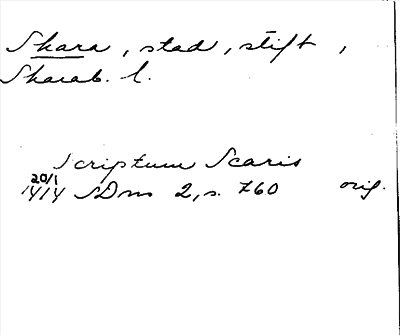 Skara, stad, stift,
Skarab. l.
Scriptum Scaris
20/1
1414 SDns 2, s. 760 orig.